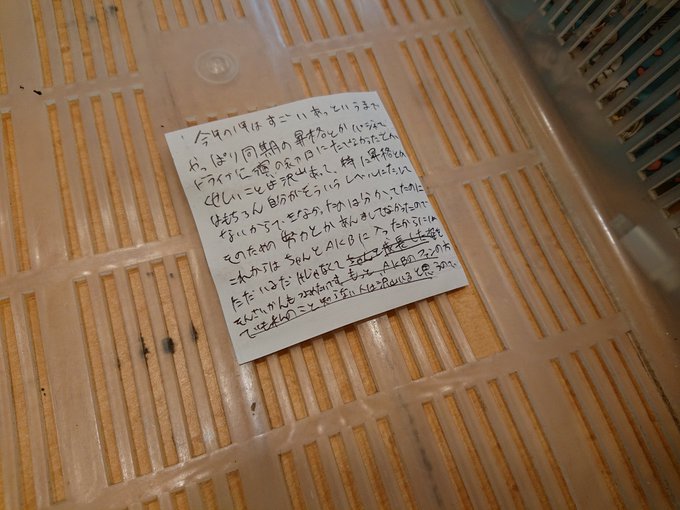 今年の1年はすごいあっというまで
やっぱり同期の昇格とかパジャマ
ドライブに窓の初日にたてなかったとか
くやしいことは沢山あって、特に昇格とか
はもちろん自分がそういうレベルにたして
ないからできなかったのは分かってたのに
そのための努力とかあんましてなかったので
これからはちゃんとAKBに入ったからには
ただいるだけじゃなくて
もっと、AKBのファンの方
のこと知らない人は沢山いると思うので